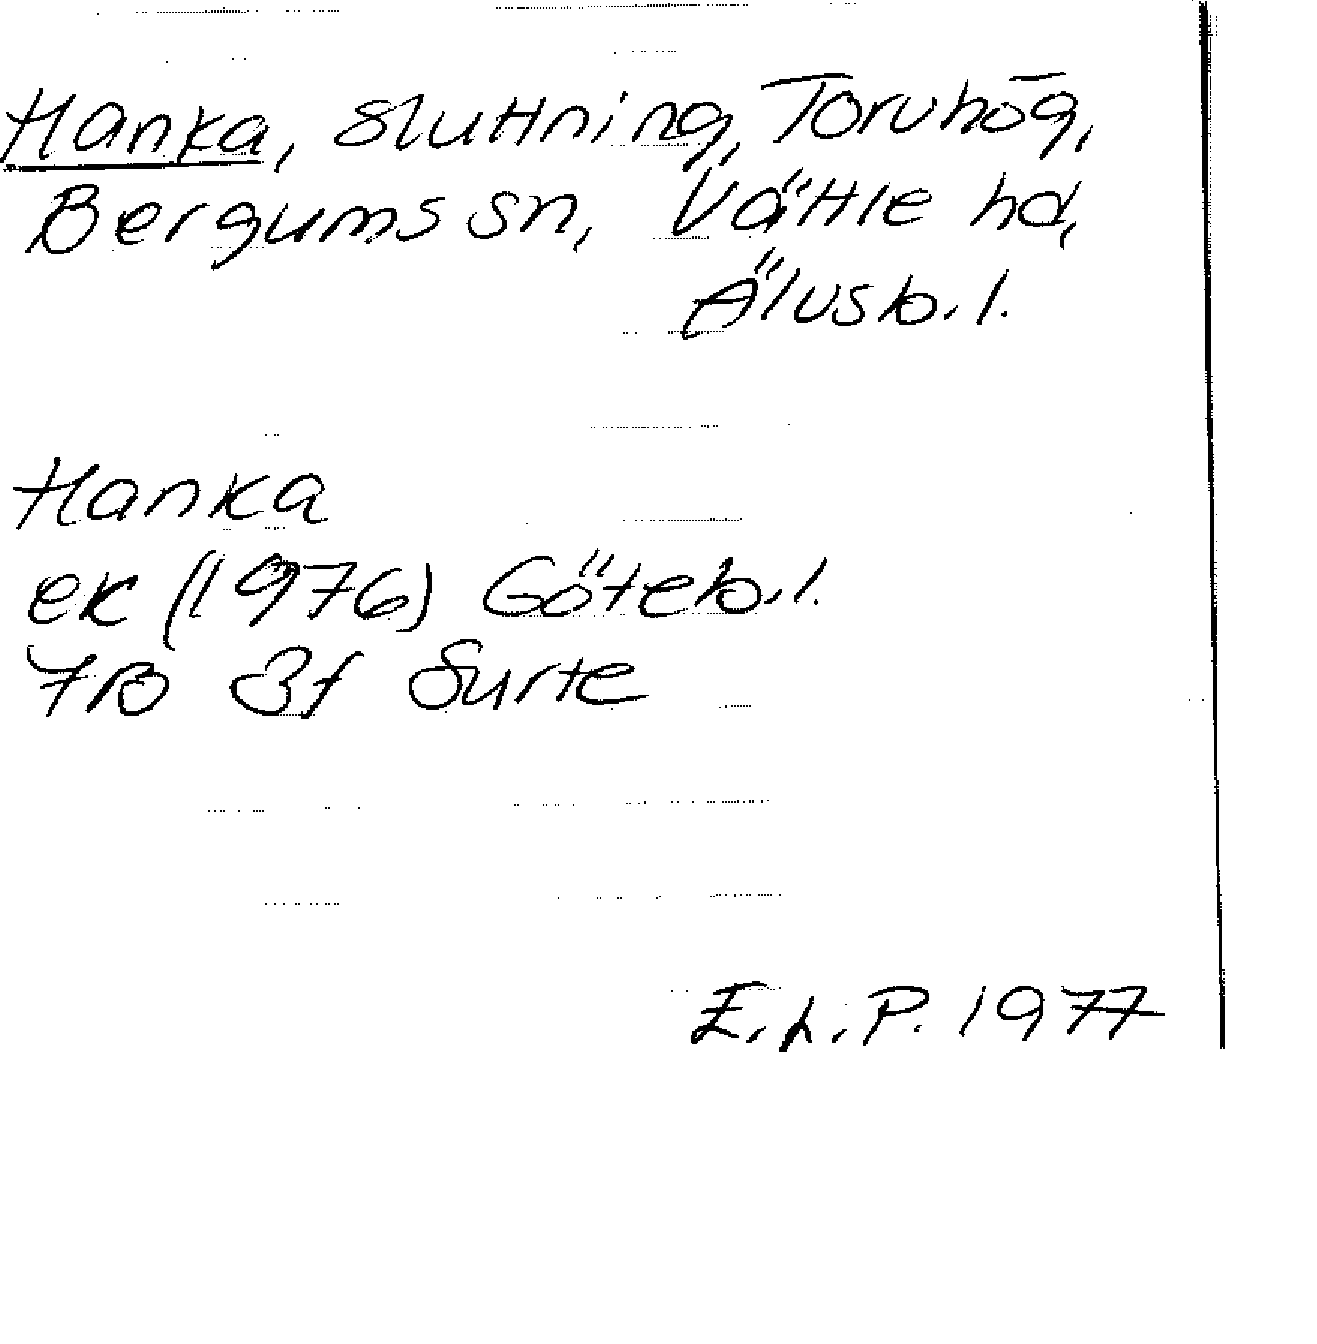 Hanka, sluttning, Torvhög,
Bergums sn, Vättle hd,
Älvsb. l.
Hanka
ek (1976) Göteb. l.
7B 3f Surte
E.L.P. 1977